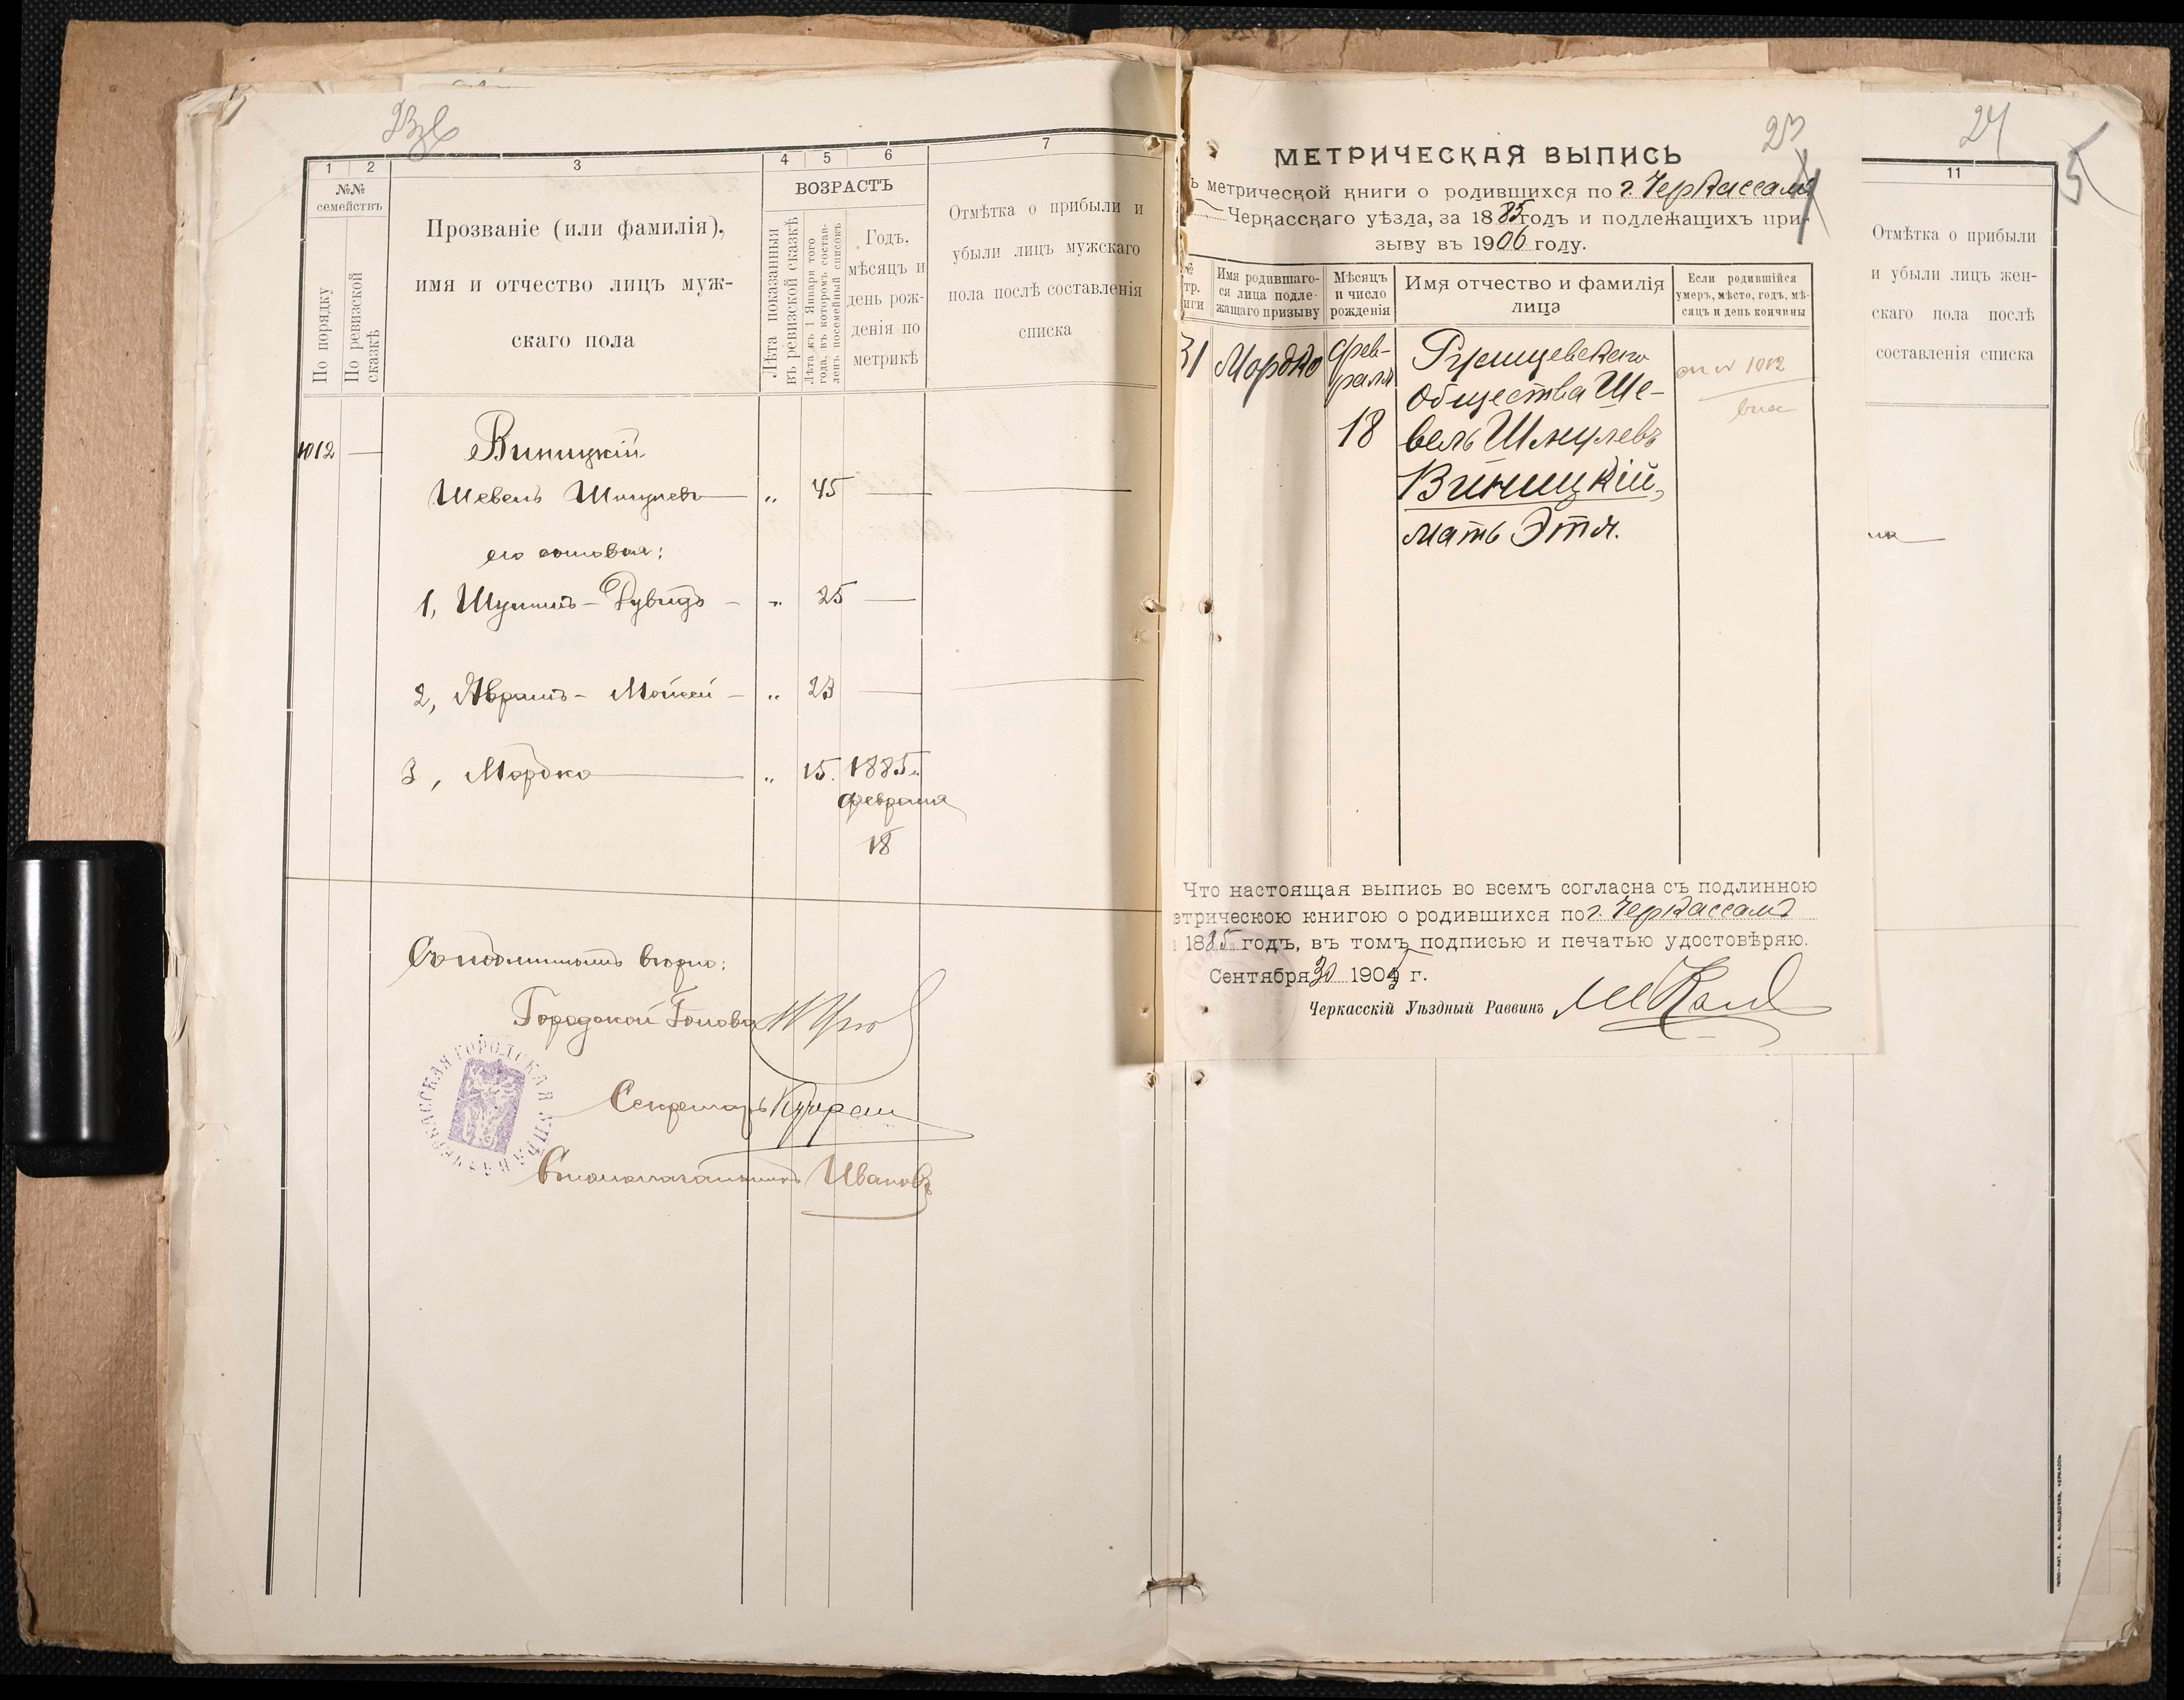 1
2
3
4
5
6
7
№№
семействъ
По порядку
По ревизской
сказкѣ
Прозваніе (или фамилія),
имя и отчество лицъ муж-
скаго пола
ВОЗРАСТЪ
Лѣта показанныя
въ ревизской сказкѣ
Лѣта къ 1 Января того
года, въ которомъ состав-
ленъ посемейный списокъ
Годъ,
мѣсяцъ и
день рож-
денія по
метрикѣ
Отмѣтка о прибыли и
убыли лицъ мужскаго
пола послѣ составленія
списка
1012 —
Виницкій
Шевель Шмулевъ — „ 45 —
его сыновья:
1, Шулимъ - Дувидъ - „ 25 —
2, Аврамъ - Мойсей - „ 23 —
3, Мордко — „ 15. 1885 г.
февраля
18
Съ подлиннымъ вѣрно:
Городской Голова
Секретарь
Дѣлопроизводитель Ивановъ
ЧЕРКАССКАЯ ГОРОДСКАЯ УПРАВА
23
МЕТРИЧЕСКАЯ ВЫПИСЬ
ъ метрической книги о родившихся по г. Черкассамъ
Черкасскаго уѣзда, за 1885 годъ и подлежащихъ при-
зыву въ 1906 году.
№
тр.
иги
Имя родившаго-
ся лица подле-
жащаго призыву
Мѣсяцъ
и число
рожденія
Имя отчество и фамилія
лица
Если родившійся
умеръ, мѣсто, годъ, мѣ-
сяцъ и день кончины
31 Мордко
Фев-
раля
18
Ржищевскаго
Общества Ше-
вель Шмулевъ
Виницкій,
мать Этя.
1012
Что настоящая выпись во всемъ согласна съ подлинною
етрическою книгою о родившихся по г. Черкассамъ
1885 годъ, въ томъ подписью и печатью удостовѣряю.
Сентября 30 1905 г.
Черкасскій Уѣздный Раввинъ
24
5
11
Отмѣтка о прибыли
и убыли лицъ жен-
скаго пола послѣ
составленія списка